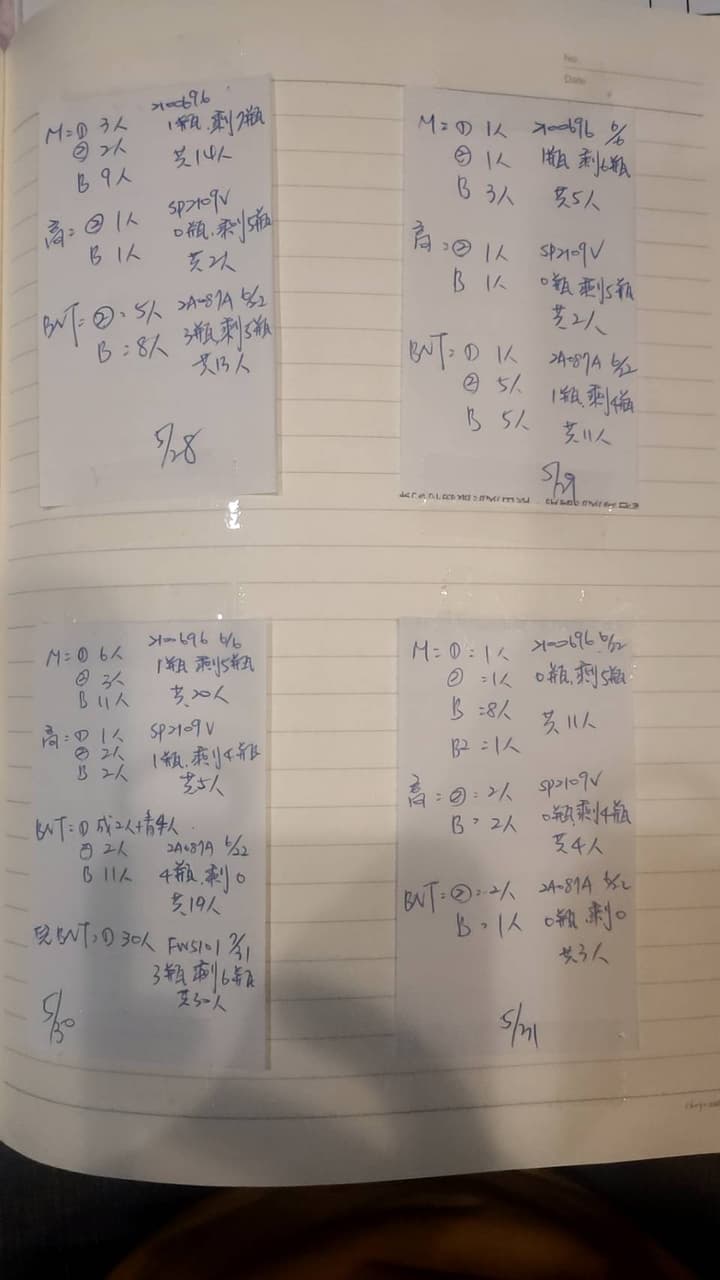 No.
Date
M=① 3人 2100696
② 2人 1瓶.剩7瓶
B 9人 共14人
高=② 1人 SP2109V
B 1人 0瓶.剩5瓶
共2人
BNT=②=5人 2A087A 6/22
B=8人 3瓶.剩5瓶
共13人
5/28
M=① 1人 2100696 6/6
② 1人 1瓶 剩6瓶
B 3人 共5人
高=② 1人 SP2109V
B 1人 0瓶 剩5瓶
共2人
BNT=① 1人 2A087A 6/22
② 5人 1瓶.剩4瓶
B 5人 共11人
5/29
M=① 6人 2100696 6/6
② 3人 1瓶 剩5瓶
B 11人 共20人
高=① 1人 SP2109V
② 2人 1瓶.剩4瓶
B 2人 共5人
BNT=① 成2人+青4人
② 2人 2A087A 6/22
B 11人 4瓶.剩0
共19人
BNT=① 30人 FW5101 7/31
3瓶 剩6瓶
共30人
5/30
M=①=1人 2100696 6/22
②=1人 0瓶.剩5瓶
B=8人 共11人
B2=1人
高=②=2人 SP2109V
B=2人 0瓶.剩4瓶
共4人
BNT=②=2人 2A087A 6/22
B=1人 0瓶.剩0
共3人
5/31